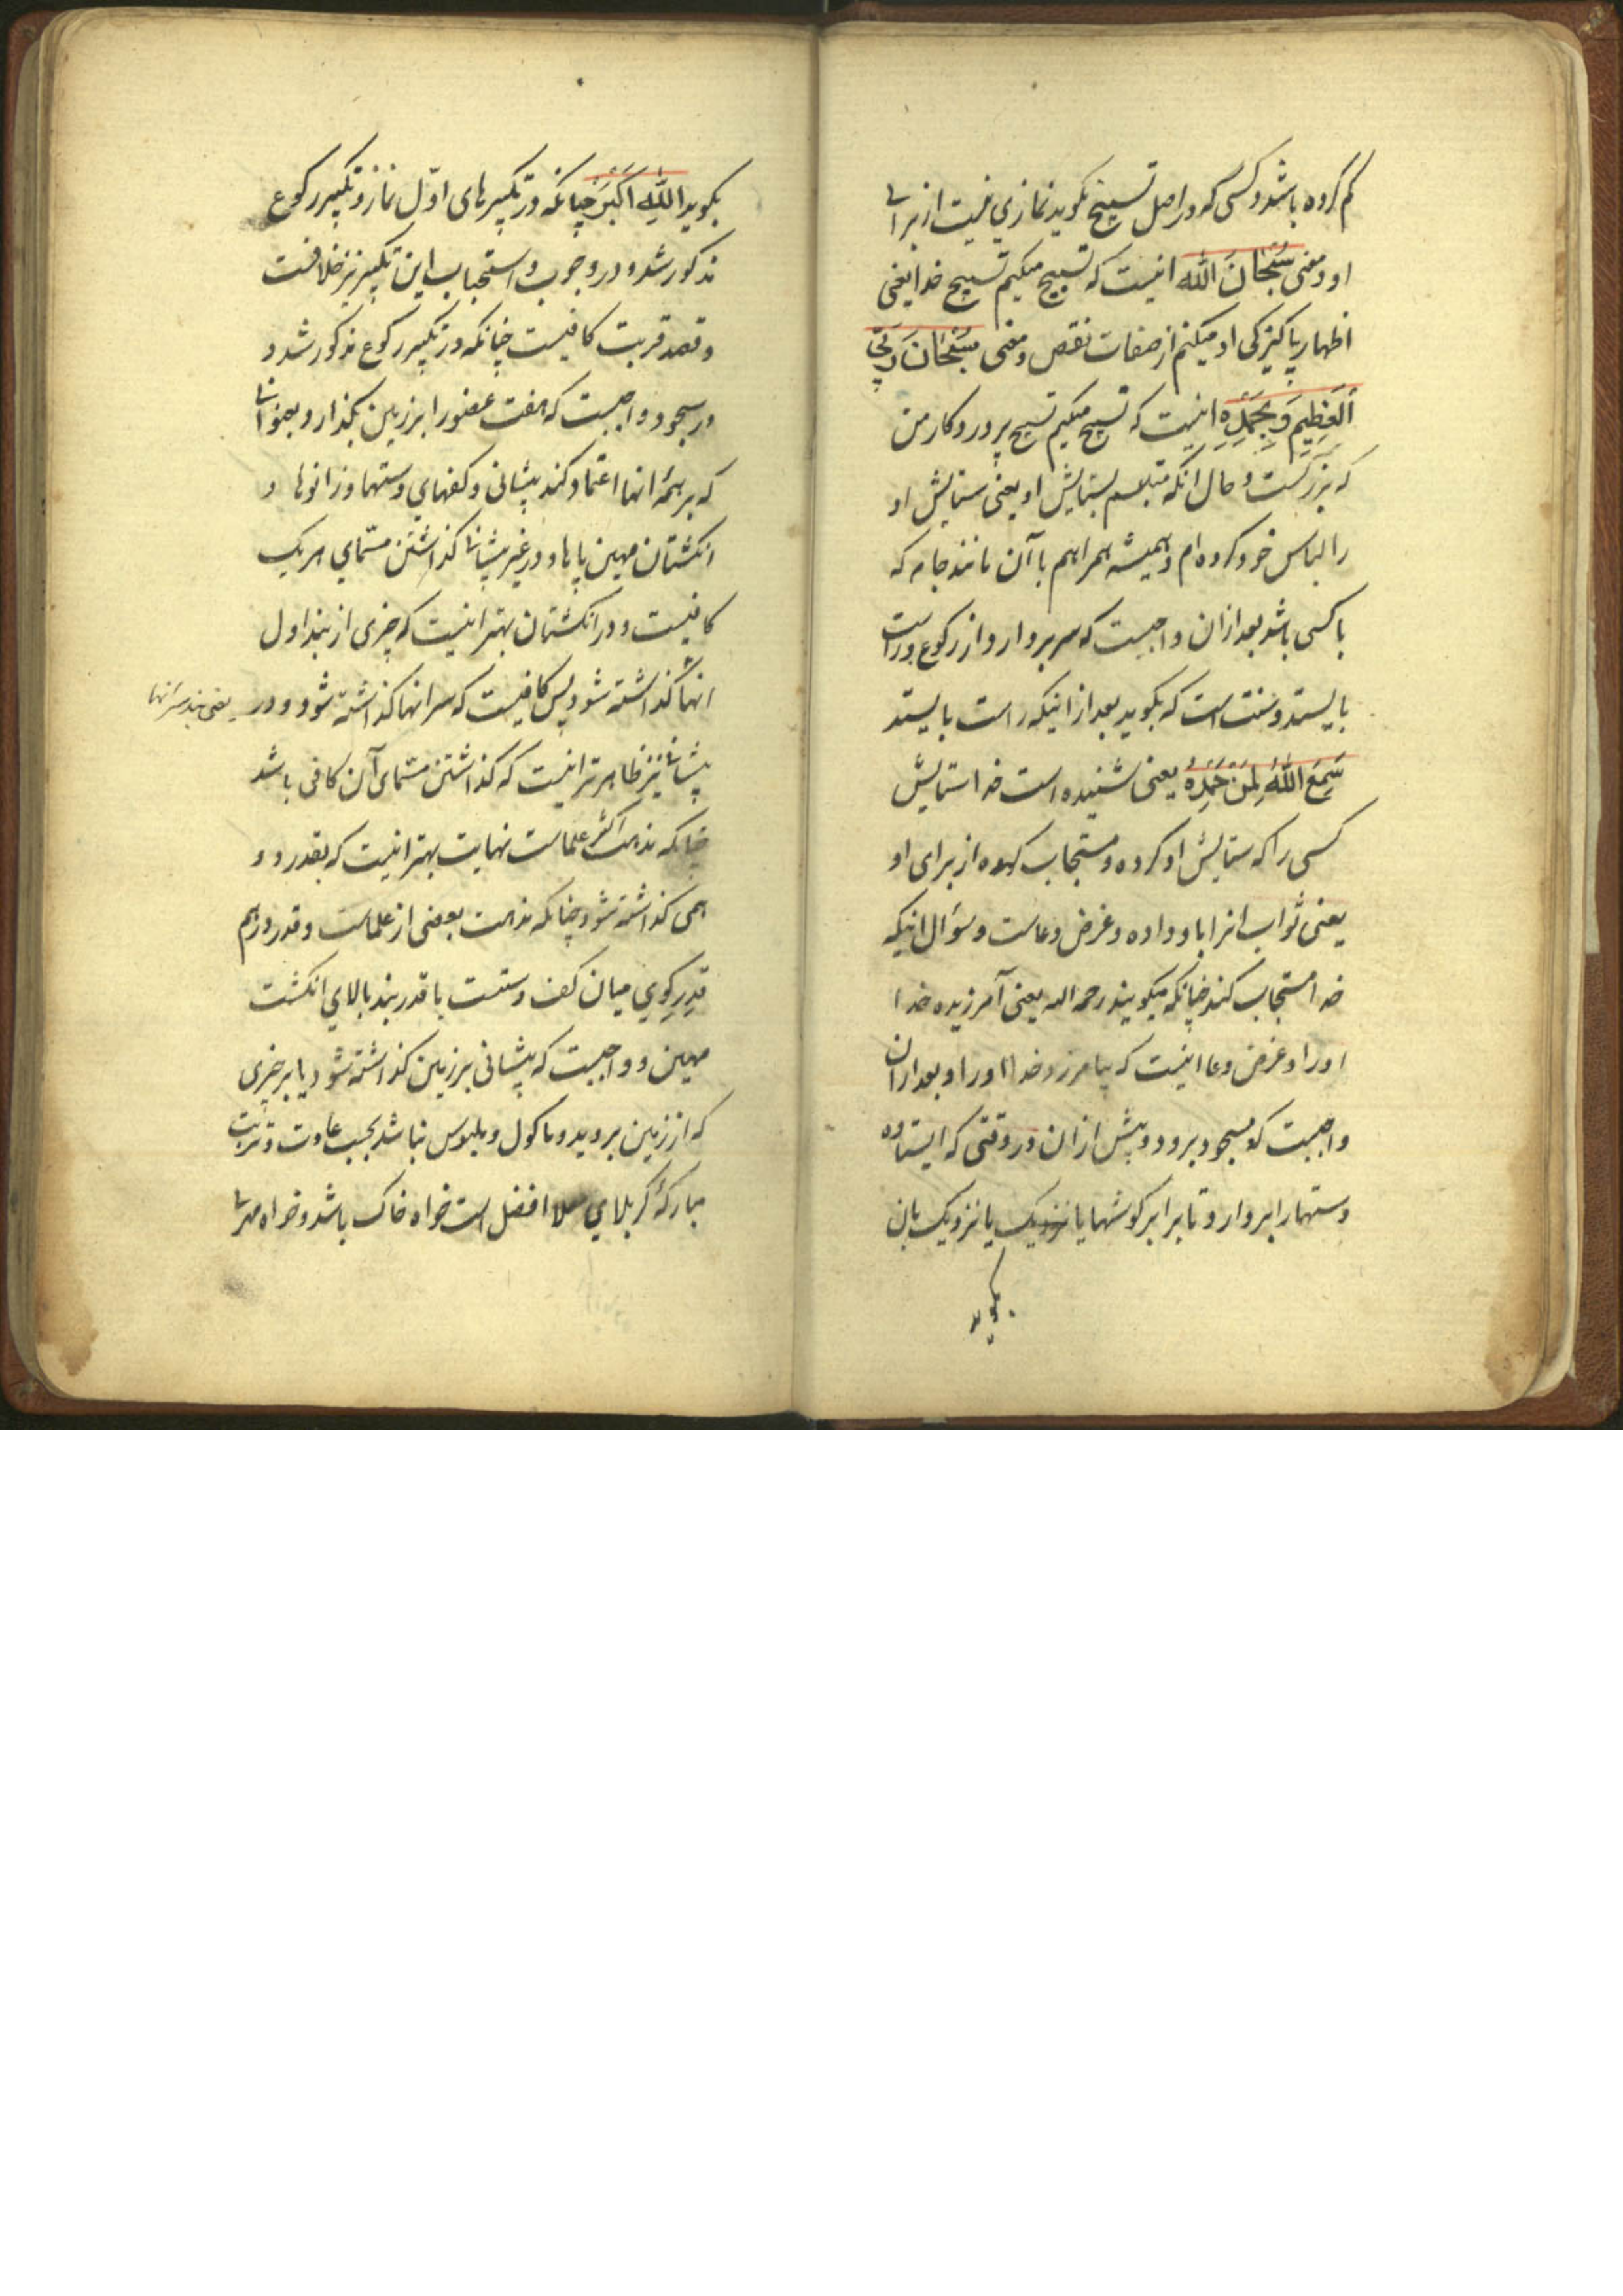 کم کرده باشد و کسی که در اصل تسبیح نکوید نمازی نیست از برای
او و معنی سُبْحَانَ اللّٰه اینست که تسبیح میکنم تسبیح خدا یعنی
اظهار پاکیزکی او میکنم از صفات نقص و معنی سُبْحَانَ رَبِّیَ
الْعَظِیمِ وَبِحَمْدِهِ اینست که تسبیح میکنم تسبیح پروردکار من
که بزرکست و حال انکه متلبسم بستایش او یعنی ستایش او
را لباس خود کرده ام و همیشه همراهم با آن مانند جامه که
با کسی باشد بعد ازان واجبست که سر بردارد از رکوع و راست
بایستد و سنت است که بکوید بعد از اینکه راست بایستد
سَمِعَ اللّٰهُ لِمَنْ حَمِدَهُ یعنی شنیده است خدا ستایش
کسی را که ستایش او کرده و مستجاب کرده از برای او
یعنی ثواب انرا باو داده و غرض دعاست و سؤال اینکه
خدا مستجاب کند چنانکه میکویند رحمه الله یعنی آمرزیده خدا
اورا و غرض دعا اینست که بیامرزد خدا اورا و بعد ازان
واجبست که بسجود برود و پیش ازان در وقتی که ایستاده
دستها را بردارد تا برابر کوشها یا نزدیک بان
بکوید
بکوید اللّٰه اَکْبَر چنانکه در تکبیرهای اوّل نماز و تکبیر رکوع
مذکور شد و در وجوب و استحباب این تکبیر نیز خلافست
و قصد قربت کافیست چنانکه در تکبیر رکوع مذکور شد و
در سجود واجبست که هفت عضو را بر زمین بکذارد بعنوانی
که بر همهٔ انها اعتماد کند پیشانی و کفهای دستها و زانوها و
انکشتان مهین پاها و در غیر پیشانی کذاشتن مسمّای هر یک
کافیست و در انکشتان بهتر اینست که چیزی از بند اول
انها کذاشته شود پس کافیست که سر انها کذاشته شود و در
یعنی بند سر انها
پیشانی نیز ظاهرتر اینست که کذاشتن مسمّای آن کافی باشد
چنانکه مذهب اکثر علماست نهایت بهتر اینست که بقدر در
همی کذاشته شود چنانکه مذهب بعضی از علماست و قدر درهم
قدرِ کوی میان کف دستست یا قدر بند بالای انکشت
مهین و واجبست که پیشانی بر زمین کذاشته شود یا بر چیزی
که از زمین بروید و ماکول و ملبوس نباشد بحسب عادت و تربت
مبارکهٔ کربلای معلا افضل است خواه خاک باشد و خواه مهری